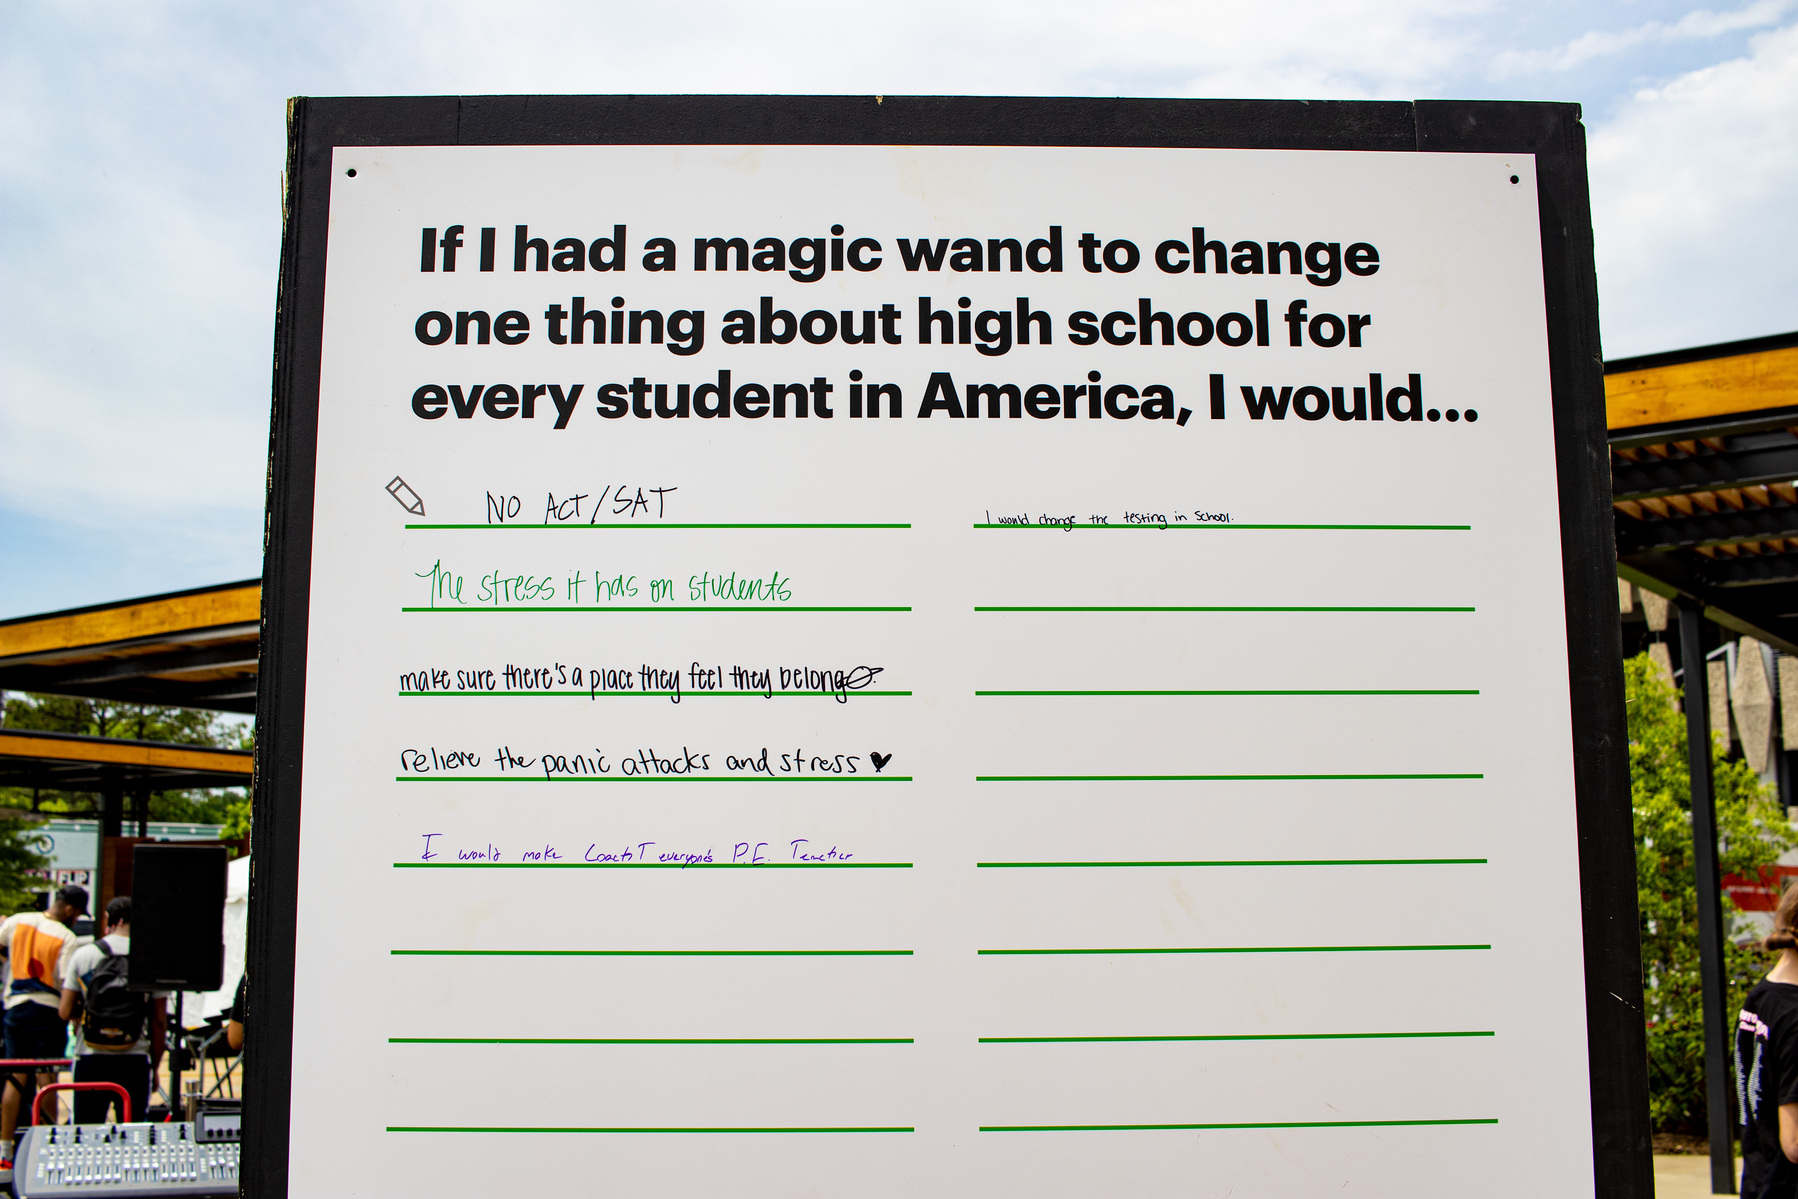 If I had a magic wand to change
one thing about high school for
every student in America, I would...
NO ACT/SAT
The stress it has on students
make sure there's a place they feel they belong
relieve the panic attacks and stress
I would make Coach T everyone's P.E. Teacher
I would change the testing in school.